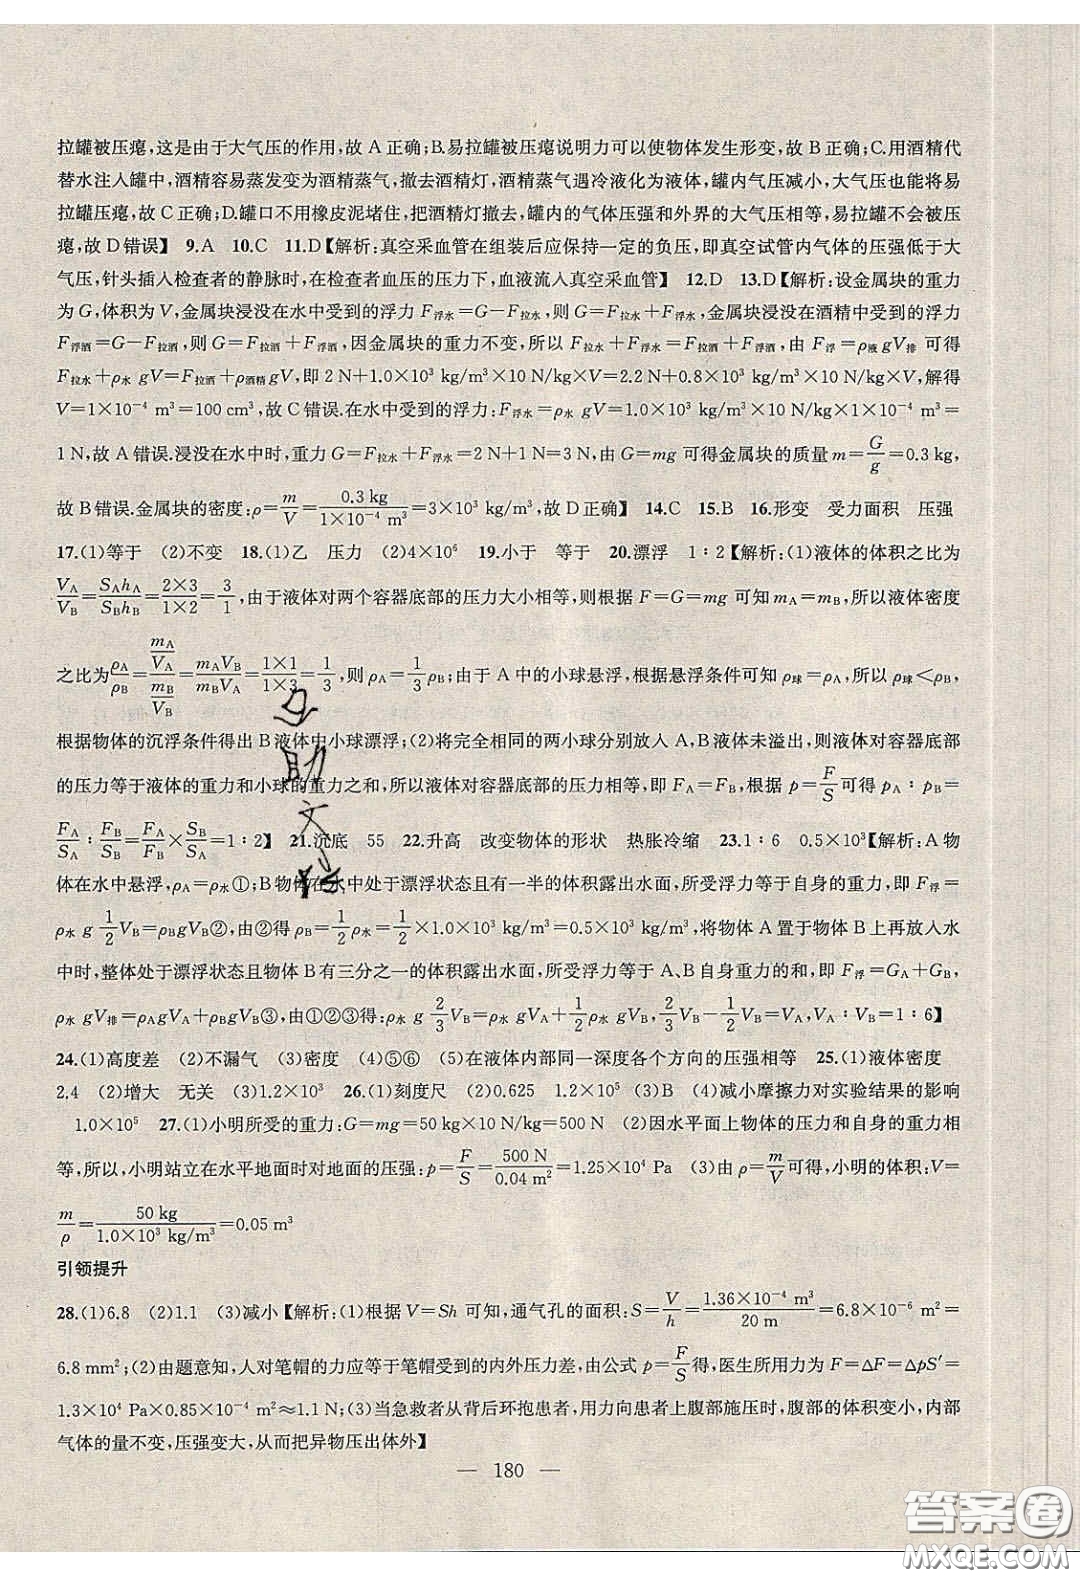 拉罐被压瘪,这是由于大气压的作用,故 A 正确;B.易拉罐被压瘪说明力可以使物体发生形变,故 B 正确;C.用酒精代
替水注入罐中,酒精容易蒸发变为酒精蒸气,撤去酒精灯,酒精蒸气遇冷液化为液体,罐内气压减小,大气压也能将易
拉罐压瘪,故 C 正确;D.罐口不用橡皮泥堵住,把酒精灯撤去,罐内的气体压强和外界的大气压相等,易拉罐不会被压
瘪,故 D 错误】 9.A 10.C 11.D【解析:真空采血管在组装后应保持一定的负压,即真空试管内气体的压强低于大
气压,针头插入检查者的静脉时,在检查者血压的压力下,血液流入真空采血管】 12.D 13.D【解析:设金属块的重力
为 G,体积为 V,金属块浸没在水中受到的浮力 F浮水=G-F拉水,则 G=F拉水+F浮水,金属块浸没在酒精中受到的浮力
F浮酒=G-F拉酒,则 G=F拉酒+F浮酒,因金属块的重力不变,所以 F拉水+F浮水=F拉酒+F浮酒,由 F浮=ρ液gV排 可得
F拉水+ρ水 gV=F拉酒+ρ酒精gV,即 2 N+1.0×10³ kg/m³×10 N/kg×V=2.2 N+0.8×10³ kg/m³×10 N/kg×V,解得
V=1×10⁻⁴ m³=100 cm³,故 C 错误.在水中受到的浮力:F浮水=ρ水 gV=1.0×10³ kg/m³×10 N/kg×1×10⁻⁴ m³=
1 N,故 A 错误.浸没在水中时,重力 G=F拉水+F浮水=2 N+1 N=3 N,由 G=mg 可得金属块的质量 m=G/g=0.3 kg,
故 B 错误.金属块的密度:ρ=m/V=0.3 kg/(1×10⁻⁴ m³)=3×10³ kg/m³,故 D 正确】 14.C 15.B 16.形变 受力面积 压强
17.(1)等于 (2)不变 18.(1)乙 压力 (2)4×10⁶ 19.小于 等于 20.漂浮 1∶2【解析:(1)液体的体积之比为
V_A/V_B=S_Ah_A/S_Bh_B=(2×3)/(1×2)=3/1,由于液体对两个容器底部的压力大小相等,则根据 F=G=mg 可知 m_A=m_B,所以液体密度
之比为ρ_A/ρ_B=(m_A/V_A)/(m_B/V_B)=m_AV_B/m_BV_A=(1×1)/(1×3)=1/3,则 ρ_A=1/3ρ_B;由于 A 中的小球悬浮,根据悬浮条件可知 ρ球=ρ_A,所以 ρ球<ρ_B,
根据物体的沉浮条件得出 B 液体中小球漂浮;(2)将完全相同的两小球分别放入 A,B 液体未溢出,则液体对容器底部
的压力等于液体的重力和小球的重力之和,所以液体对容器底部的压力相等,即 F_A=F_B,根据 p=F/S可得 p_A∶p_B=
F_A/S_A∶F_B/S_B=F_A/F_B×S_B/S_A=1∶2】 21.沉底 55 22.升高 改变物体的形状 热胀冷缩 23.1∶6 0.5×10³【解析:A 物
体在水中悬浮,ρ_A=ρ水①;B 物体在水中处于漂浮状态且有一半的体积露出水面,所受浮力等于自身的重力,即 F浮=
ρ水 g 1/2V_B=ρ_BgV_B②,由②得 ρ_B=1/2ρ水=1/2×1.0×10³ kg/m³=0.5×10³ kg/m³,将物体 A 置于物体 B 上再放入水
中时,整体处于漂浮状态且物体 B 有三分之一的体积露出水面,所受浮力等于 A、B 自身重力的和,即 F浮=G_A+G_B,
ρ水 gV排=ρ_AgV_A+ρ_BgV_B③,由①②③得:ρ水 g 2/3V_B=ρ水 gV_A+1/2ρ水 gV_B,2/3V_B-1/2V_B=V_A,V_A∶V_B=1∶6】
24.(1)高度差 (2)不漏气 (3)密度 (4)⑤⑥ (5)在液体内部同一深度各个方向的压强相等 25.(1)液体密度
2,4 (2)增大 无关 (3)1.2×10³ 26.(1)刻度尺 (2)0.625 1.2×10⁵ (3)B (4)减小摩擦力对实验结果的影响
1.0×10⁵ 27.(1)小明所受的重力:G=mg=50 kg×10 N/kg=500 N (2)因水平面上物体的压力和自身的重力相
等,所以,小明站立在水平地面时对地面的压强:p=F/S=500 N/0.04 m²=1.25×10⁴ Pa (3)由 ρ=m/V可得,小明的体积:V=
m/ρ=50 kg/(1.0×10³ kg/m³)=0.05 m³
引领提升
28.(1)6.8 (2)1.1 (3)减小【解析:(1)根据 V=Sh 可知,通气孔的面积:S=V/h=1.36×10⁻⁴ m³/20 m=6.8×10⁻⁶ m²=
6.8 mm²;(2)由题意知,人对笔帽的力应等于笔帽受到的内外压力差,由公式 p=F/S得,医生所用力为 F=ΔF=ΔpS′=
1.3×10⁴ Pa×0.85×10⁻⁴ m²≈1.1 N;(3)当急救者从背后环抱患者,用力向患者上腹部施压时,腹部的体积变小,内部
气体的量不变,压强变大,从而把异物压出体外】
— 180 —
答案圈
MXQE.COM